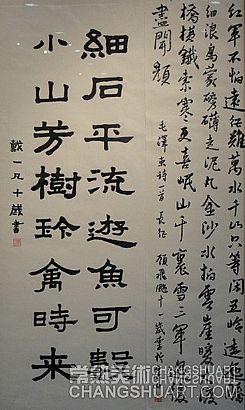 红軍不怕远征難千山只等闲五岭逶迤腾
细浪烏蒙磅礴走泥丸金沙水拍雲崖暖大渡
橋横鐵索寒更喜岷山千裏雪三軍過後
盡開顏 毛澤東詩一首 長征 十一歲書
細石平流遊魚可數
小山芳樹珍禽時来
戴一凡十歲書
常熟美術
CHANGSHUART.COM
常熟美術
CHANGSHUART.COM